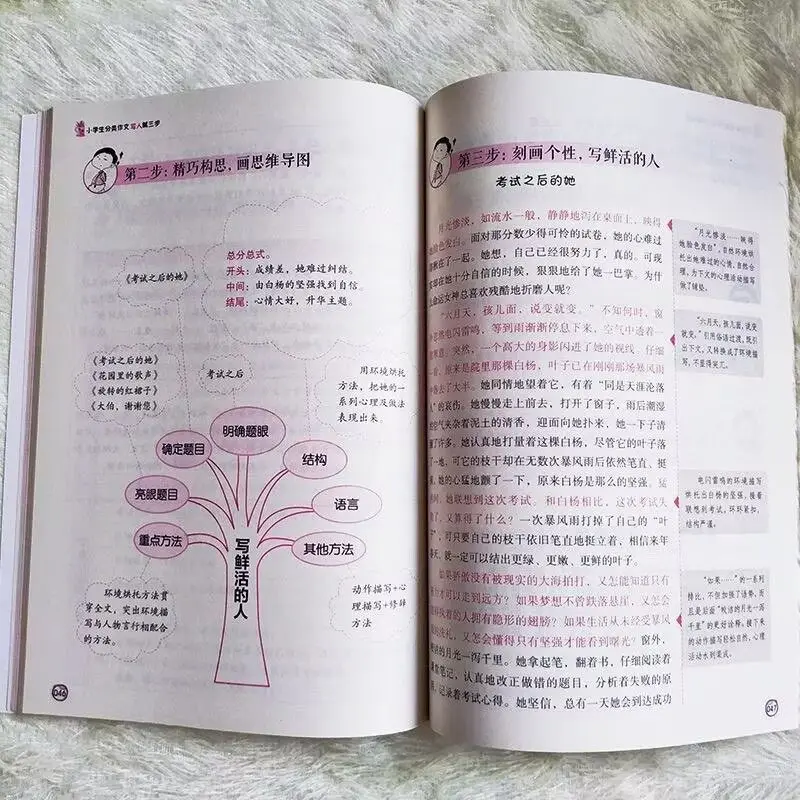 小学生分类作文写人就三步
第二步：精巧构思，画思维导图
总分总式。
开头：成绩差，她难过纠结。
中间：由白杨的坚强找到自信。
结尾：心情大好，升华主题。
《考试之后的她》
《考试之后的她》
《花园里的歌声》
《旋转的红裙子》
《大伯，谢谢您》
考试之后
用环境烘托
方法，把她的一
系列心理及做法
表现出来。
明确题眼
确定题目
结构
亮眼题目
语言
重点方法
其他方法
写鲜活的人
环境烘托方法贯
穿全文，突出环境描
写与人物言行相配合
的方法。
动作描写+心
理描写+修辞
方法
046
第三步：刻画个性，写鲜活的人
考试之后的她
月光惨淡，如流水一般，静静地泻在桌面上，映得
她脸色发白。面对那分数少得可怜的试卷，她的心难过
在了一起。她想，自己已经很努力了，真的。可现
实却在她十分自信的时候，狠狠地给了她一巴掌。为什
么命运女神总喜欢残酷地折磨人呢？
“六月天，孩儿面，说变就变。”不知何时，窗
外忽然电闪雷鸣，等到雨渐渐停息下来，空气中透着一
意。突然，一个高大的身影闪进了她的视线。仔细
看，原来是院里那棵白杨，叶子已在刚刚那场暴风雨
去了大半。她同情地望着它，有着“同是天涯沦落
人”的哀伤。她慢慢走上前去，打开了窗子，雨后潮湿
的空气夹杂着泥土的清香，迎面向她扑来，她一下子清
醒了许多。她认真地打量着这棵白杨，尽管它的叶子落
了一地，可它的枝干却在无数次暴风雨后依然笔直、挺
，她的心猛地颤了一下，原来白杨是那么的坚强。猛
，她联想到这次考试。和白杨相比，这次考试失
，又算得了什么？一次暴风雨打掉了自己的“叶
子”，可只要自己的枝干依旧笔直地挺立着，相信来年
春天，就一定可以结出更绿、更嫩、更鲜的叶子。
如果骄傲没有被现实的大海拍打，又怎能知道只有
努力才可以走到远方？如果梦想不曾跌落悬崖，又怎会
执着的人拥有隐形的翅膀？如果生活从未经受暴风
洗礼，又怎会懂得只有坚强才能看到曙光？窗外，
的月光一泻千里。她拿起笔，翻着书，仔细阅读着
课堂笔记，认真地改正做错的题目，分析着失败的原
，记录着考试心得。她坚信，总有一天她会到达成功
“月光惨淡……映得
她脸色发白”，自然环境烘
托出她难过的心情，自然合
理，为下文的心理活动描写
做了铺垫。
“六月天，孩儿面，说变
就变。”引用俗语过渡，既引
出下文，又转换成了环境描
写，不显得突兀。
电闪雷鸣的环境描写
烘托出白杨的坚强，接着
联想到考试，环环紧扣，
结构严谨。
“如果……”的一系列
排比，不但加强了语势，而
且是后面“皎洁的月光一泻
千里”的更好诠释，接下来
的动作描写轻松自然，心理
活动水到渠成。
047